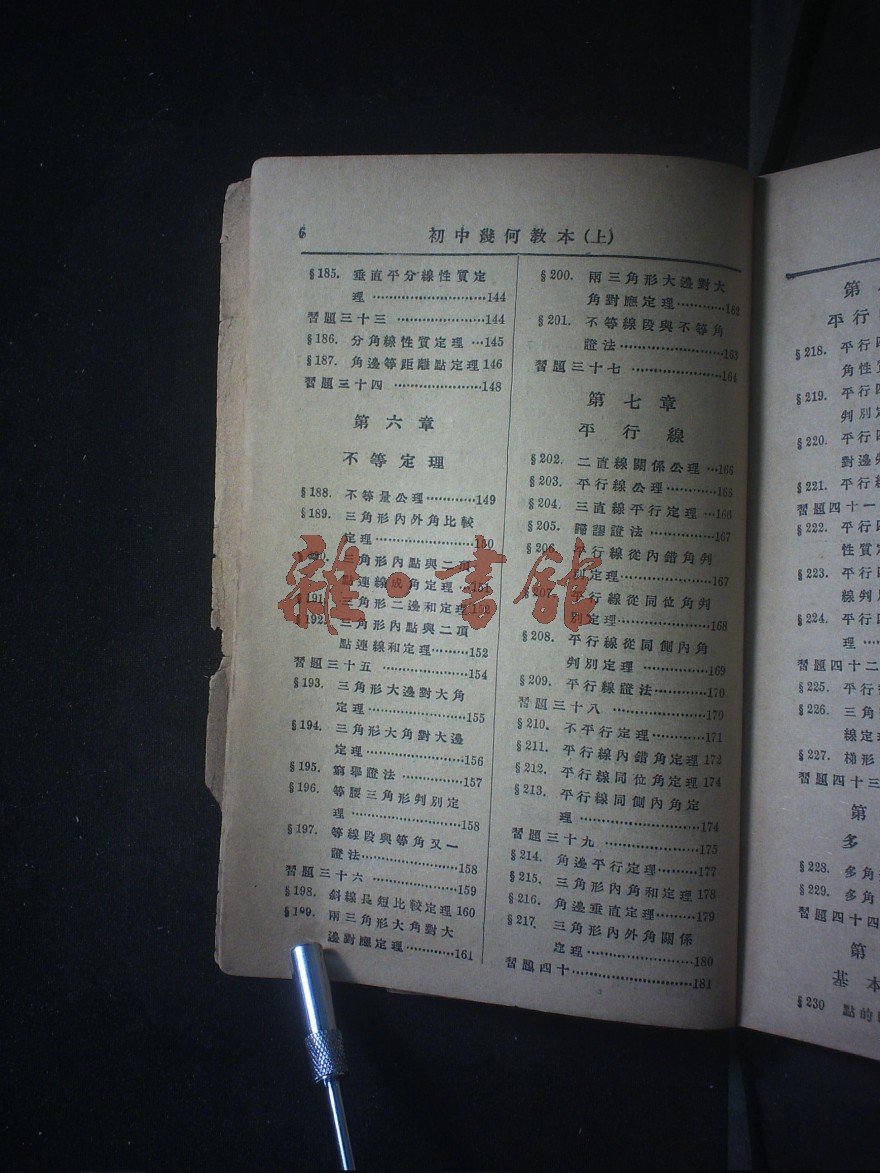 6
初中幾何教本(上)
§185. 垂直平分線性質定
理 ························144
習題三十三 ··················144
§186. 分角線性質定理 ···145
§187. 角邊等距離點定理 146
習題三十四 ··················148
第六章
不等定理
§188. 不等量公理············149
§189. 三角形內外角比較
定理························150
三角形內點與二頂
點連線成角定理 ···151
§191. 三角形二邊和定理 152
§192. 三角形內點與二頂
點連線和定理·········152
習題三十五 ··················154
§193. 三角形大邊對大角
定理························155
§194. 三角形大角對大邊
定理························156
§195. 窮舉證法 ···············157
§196. 等腰三角形判別定
理 ························158
§197. 等線段與等角又一
證法························158
習題三十六 ··················159
§198. 斜線長短比較定理 160
§199. 兩三角形大角對大
邊對應定理············161
§200. 兩三角形大邊對大
角對應定理············162
§201. 不等線段與不等角
證法 ·····················163
習題三十七 ··················164
第七章
平行線
§202. 二直線關係公理 ···166
§203. 平行線公理············166
§204. 三直線平行定理 ···166
§205. 歸謬證法 ···············167
§206. 平行線從內錯角判
別定理·····················167
§207. 平行線從同位角判
別定理·····················168
§208. 平行線從同側內角
判別定理 ···············169
§209. 平行線證法············170
習題三十八 ··················170
§210. 不平行定理············171
§211. 平行線內錯角定理 172
§212. 平行線同位角定理 174
§213. 平行線同側內角定
理 ························174
習題三十九 ··················175
§214. 角邊平行定理·········177
§215. 三角形內角和定理 178
§216. 角邊垂直定理·········179
§217. 三角形內外角關係
定理························180
習題四十························181
第
平行
§218. 平行
角性
§219. 平行
判別
§220. 平行
對邊
§221. 平行
習題四十一
§222. 平行
性質
§223. 平行
線判
§224. 平行
理 ···
習題四十二
§225. 平行
§226. 三角
線定
§227. 梯形
習題四十三
第
多
§228. 多角
§229. 多角
習題四十四
第
基本
§230 點的
雜·書館